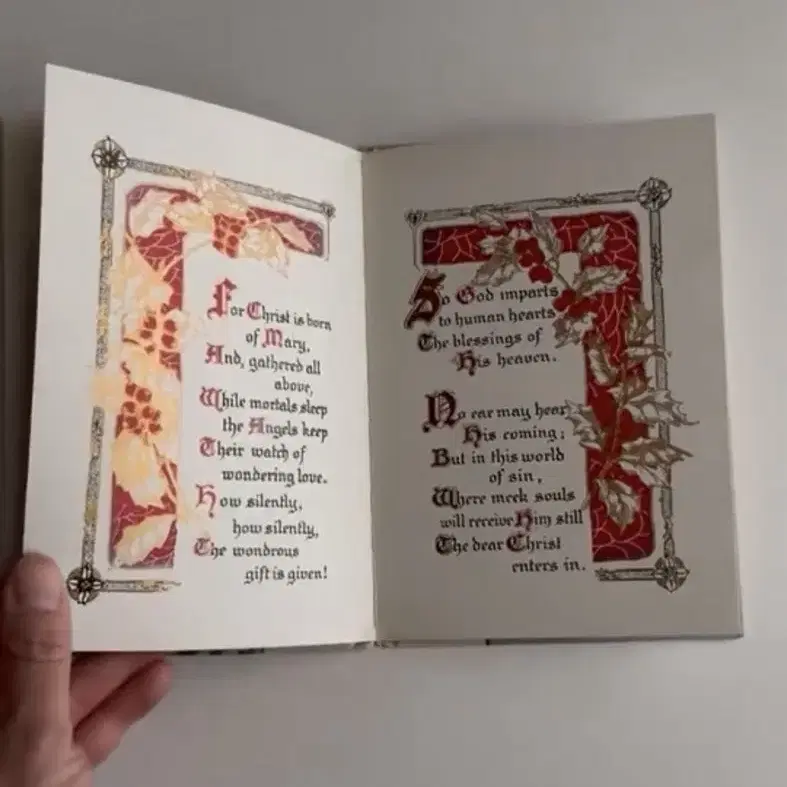 For Christ is born
of Mary,
And, gathered all
above,
While mortals sleep
the Angels keep
Their watch of
wondering love.
How silently,
how silently,
The wondrous
gift is given!
So God imparts
to human hearts
The blessings of
His heaven.
No ear may hear
His coming;
But in this world
of sin,
Where meek souls
will receive Him still
The dear Christ
enters in.